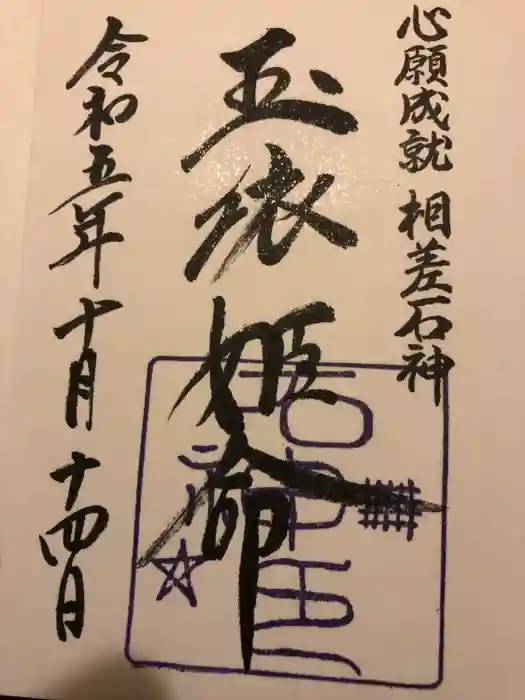 心願成就 相差石神
玉依姫命
令和五年十月十四日